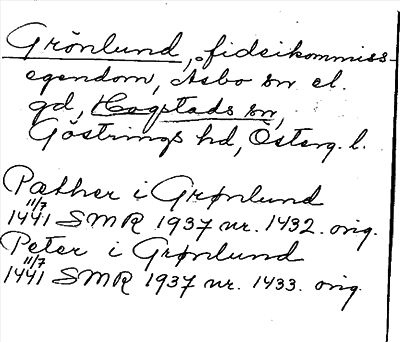 Grönlund, fideikommiss-
egendom, Åsbo sn el.
gd, Hogstads sn,
Göstrings hd, Österg. l.
Pæther i Grønlund
11/7
1441 SMR 1937 nr. 1432. orig.
Peter i Grønlund
11/7
1441 SMR 1937 nr. 1433. orig.